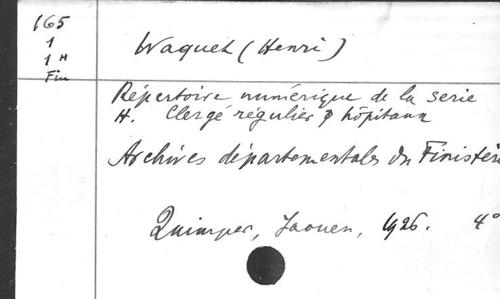 165
1
1 H
Fin
Waquet (Henri)
Répertoire numérique de la serie
H. Clergé régulier & hôpitaux
Archives départementales du Finistère
Quimper, Jaouen, 1926. 4°